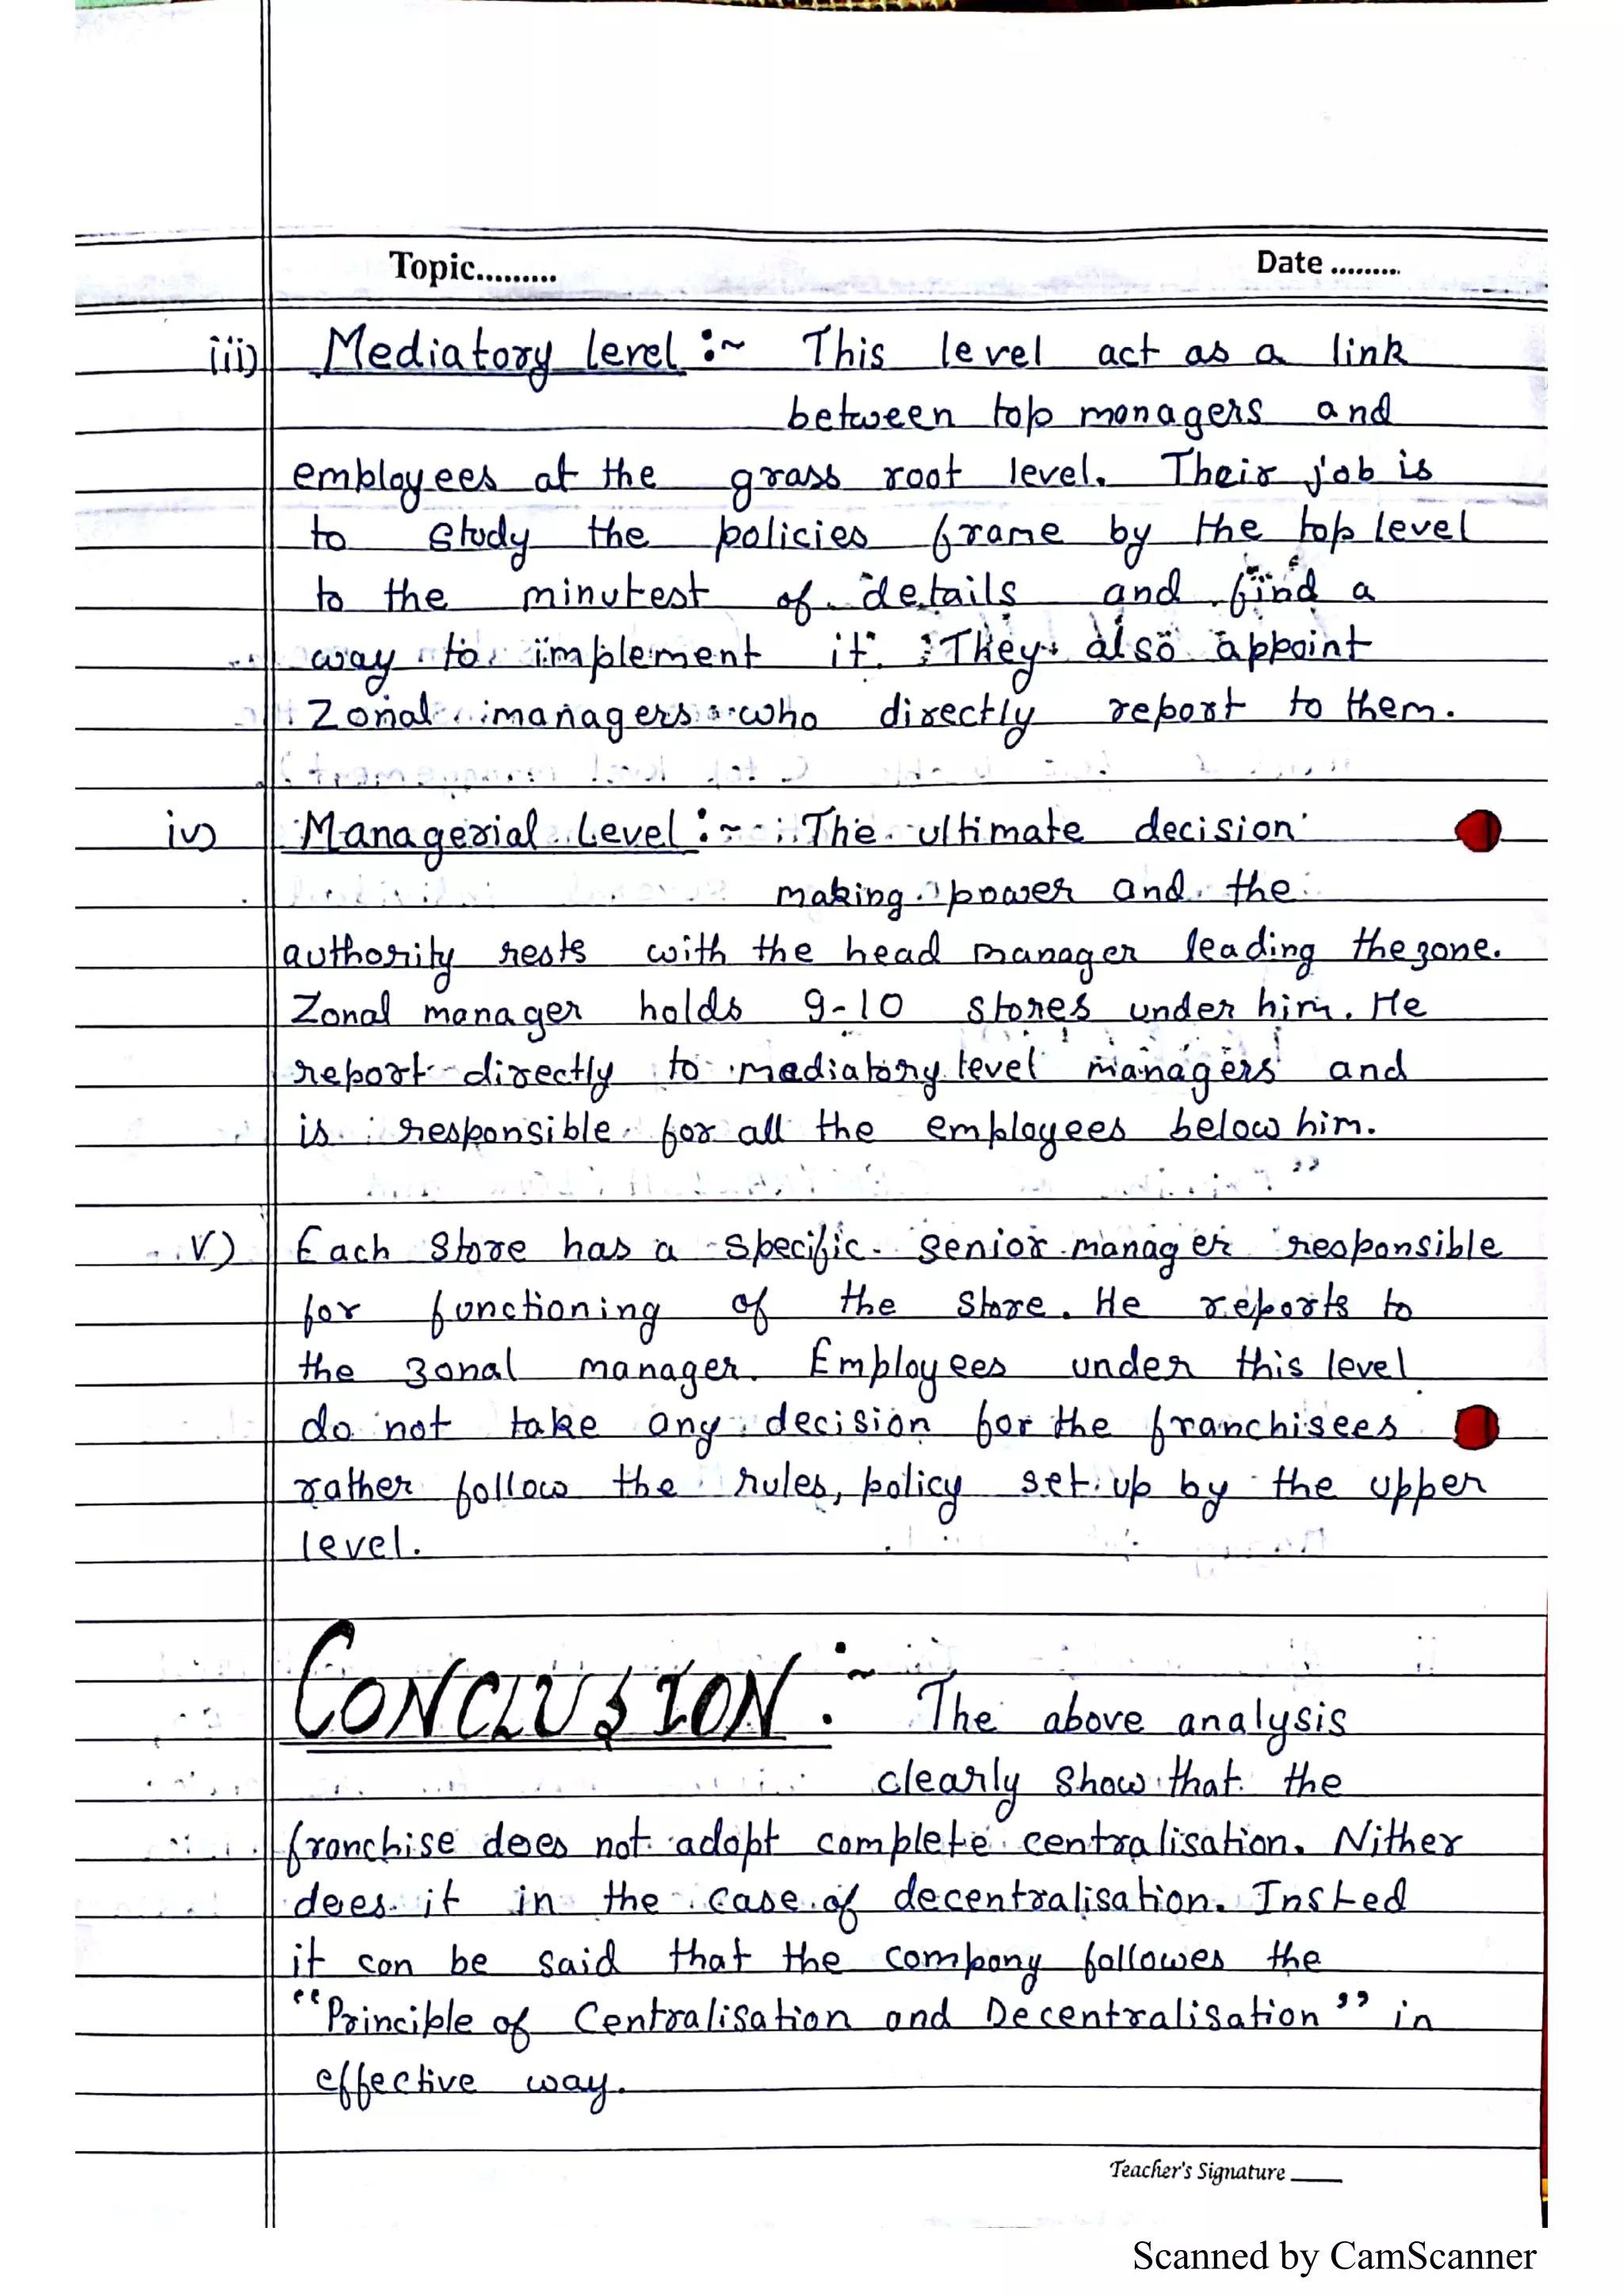 Topic......... Date .........
iii) Mediatory level :~ This level act as a link
between top managers and
employees at the grass root level. Their job is
to study the policies frame by the top level
to the minutest of details and find a
way to implement it. They also appoint
Zonal managers who directly report to them.
iv) Managerial Level :~ The ultimate decision
making power and the
authority rests with the head manager leading the zone.
Zonal manager holds 9-10 stores under him. He
report directly to mediatory level managers and
is responsible for all the employees below him.
v) Each store has a specific senior manager responsible
for functioning of the store. He reports to
the zonal manager. Employees under this level
do not take any decision for the franchisees
rather follow the rules, policy set up by the upper
level.
CONCLUSION :~ The above analysis
clearly show that the
franchise does not adopt complete centralisation. Nither
does it in the case of decentralisation. Insted
it can be said that the company followes the
"Principle of Centralisation and Decentralisation" in
effective way.
Teacher's Signature ____
Scanned by CamScanner